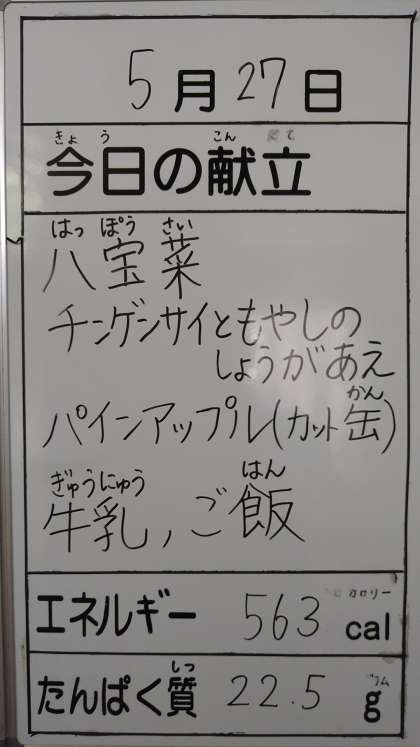 5月27日
きょう こん
今日の献立
はっ ぽう さい
八宝菜
チンゲンサイともやしの
しょうがあえ
かん
パインアップル(カット缶)
ぎゅうにゅう はん
牛乳,ご飯
カロリー
エネルギー 563 cal
しつ グラム
たんぱく質 22.5 g